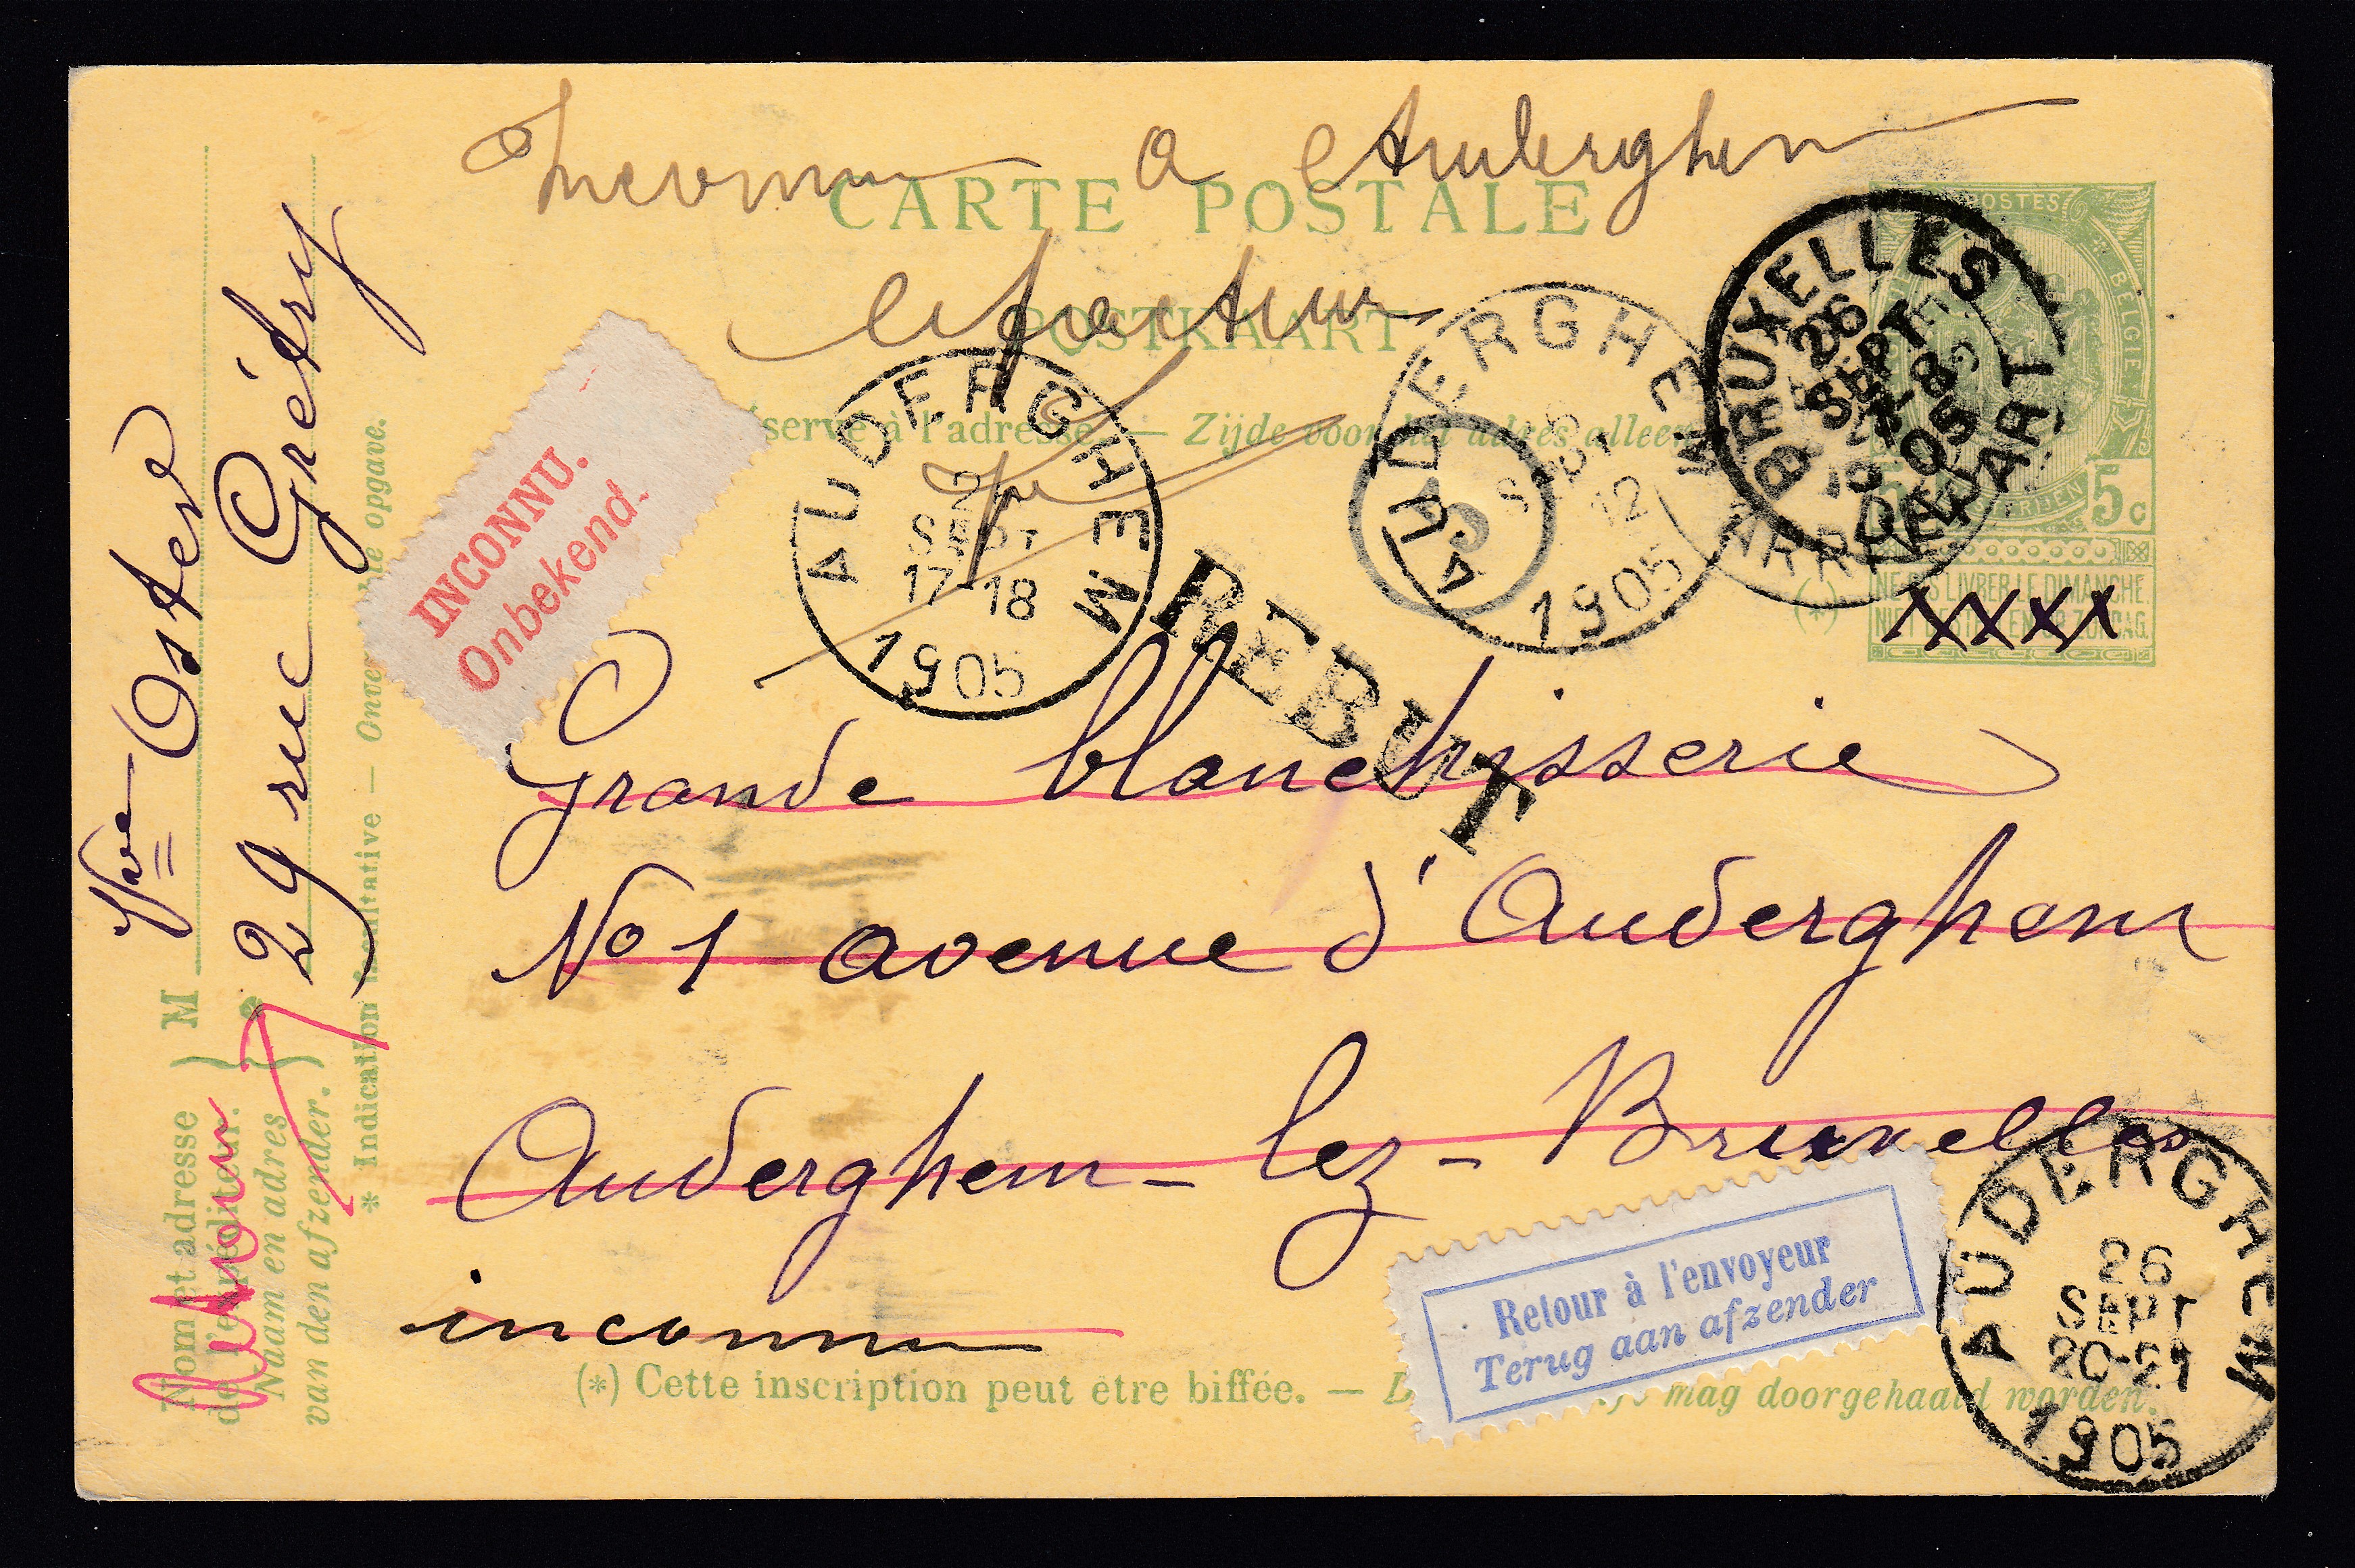 Inconnu a Auderghem
CARTE POSTALE
le facteur
POSTKAART
servé à l'adresse. — Zijde voor het adres alleen
INCONNU.
Onbekend.
AUDERGHEM
SEPT
17-18
1905
AUDERGHEM
SEPT
12
1905
9
BRUXELLES
26
SEPT
7-8
05
DEPART
ARRIVEE
POSTES
BELGIE
5c
NE PAS LIVRER LE DIMANCHE.
NIET BESTELLEN OP ZONDAG.
(*)
xxxx
REBUT
Grande blanchisserie
No 1 avenue d'Auderghem
Auderghem-lez-Bruxelles
inconnu
Retour à l'envoyeur
Terug aan afzender
AUDERGHEM
26
SEPT
20-21
1905
(*) Cette inscription peut être biffée. — mag doorgehaald worden.
Vve Osterd
29 rue Grétry
M
Nom et adresse
de l'expéditeur.
Naam en adres
van den afzender.
* Indication facultative — opgave.